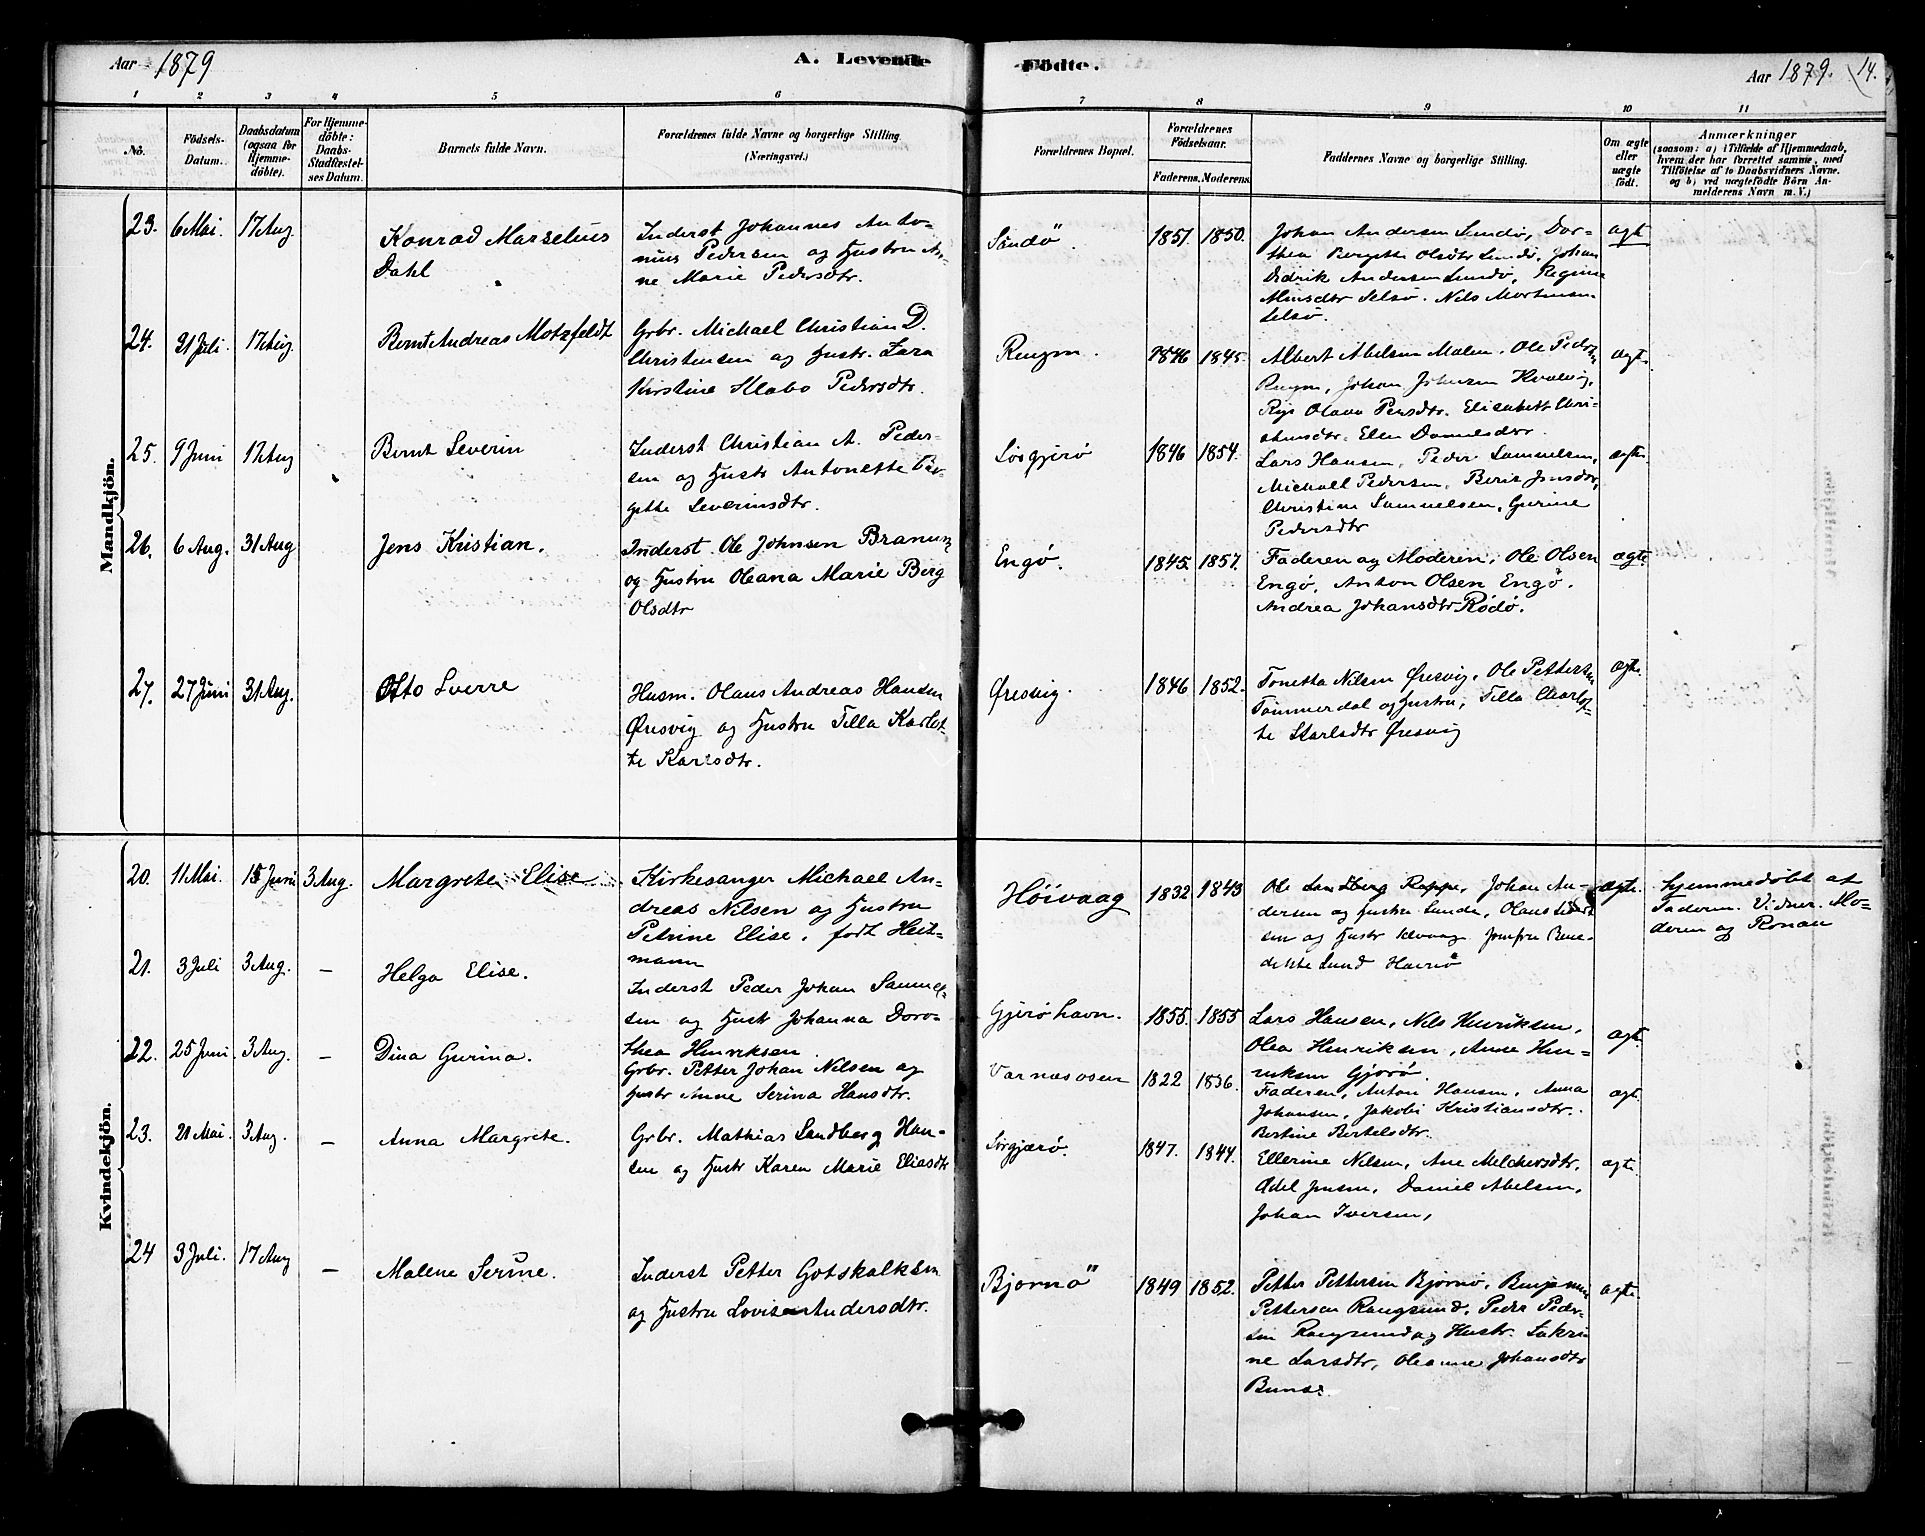 Aar 1879
A. Levende
Födte.
Aar 1879. 14.
1 2 3 4 5 6 7 8 9 10 11
No.
Födsels-
Datum.
Daabsdatum
(ogsaa for
Hjemme-
döbte).
For Hjemme-
döbte:
Daabs-
Stadfæstel-
ses Datum.
Barnets fulde Navn.
Forældrenes fulde Navne og borgerlige Stilling.
(Næringsvei.)
Forældrenes Bopæl.
Forældrenes
Födselsaar.
Faderens. Moderens.
Faddernes Navne og borgerlige Stilling.
Om ægte
eller
uægte
födt.
Anmærkninger
(saasom: a) i Tilfælde af Hjemmedaab,
hvem der har forrettet samme, med
Tilföielse af to Daabsvidners Navne.
og b) ved uægtefödte Börn An-
melderens Navn m. V.)
Mandkjön.
23. 6 Mai. 17 Aug
Konrad Marselius
Dahl
Inderst Johannes Anto-
nius Pedersen og Hustru An-
ne Marie Pedersdtr.
Sandö.
1851. 1850.
Johan Andersen Sundö, Dor-
thea Bergitte Olsdtr Sundö, Johan
Didrik Andersen Sundö, Regine
Selsö. Nils Mortensen
Selsö.
ægt
24. 31 Juli. 17 Aug
Bernt Andreas Motzfeldt
Grbr. Michael Christian D.
Christensen og Hustr. Lara
Kirstine Klabo Pedersdtr.
1846 1845.
Albert Abelsen Malen. Ole Pedersen
Johan Johnsen Kvalvig,
Olava Pedersdtr. Elisabeth Chri-
stensdtr. Elen Danielsdtr.
ægt.
25. 9 Juni 17 Aug
Bernt Severin
Inderst Christian A. Peder-
sen og Hustr Antonette Bir-
gitte Severinsdtr.
Sörgjerö
1846 1854.
Lars Hansen, Peder Samuelsen,
Michael Pedersen, Berit Jensdtr,
Christine Samuelsen, Gurine
Pedersdtr
ægte.
26. 6 Aug. 31 Aug
Jens Kristian.
Inderst. Ole Johnsen
og Hustru Oleana Marie Berg
Olsdtr
Engö.
1845. 1857.
Faderen og Moderen, Ole Olsen
Engö, Anton Olsen Engö.
Andrea Johansdtr Rödö.
ægte
27. 27 Juni 31 Aug.
Otto Sverre
Husm. Olaus Andreas Hansen
Øresvig og Hustru Tella Karlot-
te Karlsdtr.
Øresvig.
1846 1852.
Tonetta Nilsen Øresvig, Ole Pettersen
Tömmerdal og Hustru, Tella Charlot-
te Karlsdtr Øresvig
ægte
Kvindekjön.
20. 11 Mai. 15 Juni 3 Aug.
Margrete Elise
Kirkesanger Michael An-
dreas Nilsen og Hustru
Petrine Elise, födt Heit-
mann
Höivaag
1832 1843
Ole Sundberg Johan An-
dersen og Hustru
sen og Hustr Jomfru Bene-
dikte Lund
ægte.
Hjemmedöbt af
Faderen. Vidner. Mo-
deren og
21. 3 Juli 3 Aug. –
Helga Elise.
Inderst Peder Johan Samuel-
sen og Hustr Johanna Doro-
thea Henriksen
Gjeröhavn.
1855. 1855
Lars Hansen, Nils Henriksen,
Olea Henriksen, Anne Hen-
riksen Gjerö
ægt
22. 25 Juni 3 Aug. –
Dina Gurina.
Grbr. Petter Johan Nilsen og
Hustr Anne Serina Hansdtr.
Varnæsosen
1822 1836.
Faderen, Anton Hansen, Anna
Johansen, Jakobi Kristiansdtr.
Bertine Bertelsdtr.
ægt.
23. 21 Mai. 3 Aug. –
Anna Margrete.
Grbr. Mathias Sandberg Han-
sen og Hustr Karen Marie Eliasdtr
Sörgjærö.
1847. 1844.
Ellerine Nilsen, Ane Melchersdtr.
Odel Jensen, Daniel Abelsen,
Johan Iversen,
ægt
24 3 Juli. 17 Aug –
Malene Serine.
Inderst Petter Gotskalksen
og Hustru Lovise Andersdtr.
Bjørnö
1849 1852.
Petter Pettersen Bjørnö, Benjamin
Petterson Rangsund, Peder Peder-
sen Rangsund og Hustr. Sakri
ne Larsdtr, Oleanne Johansdtr
ægte